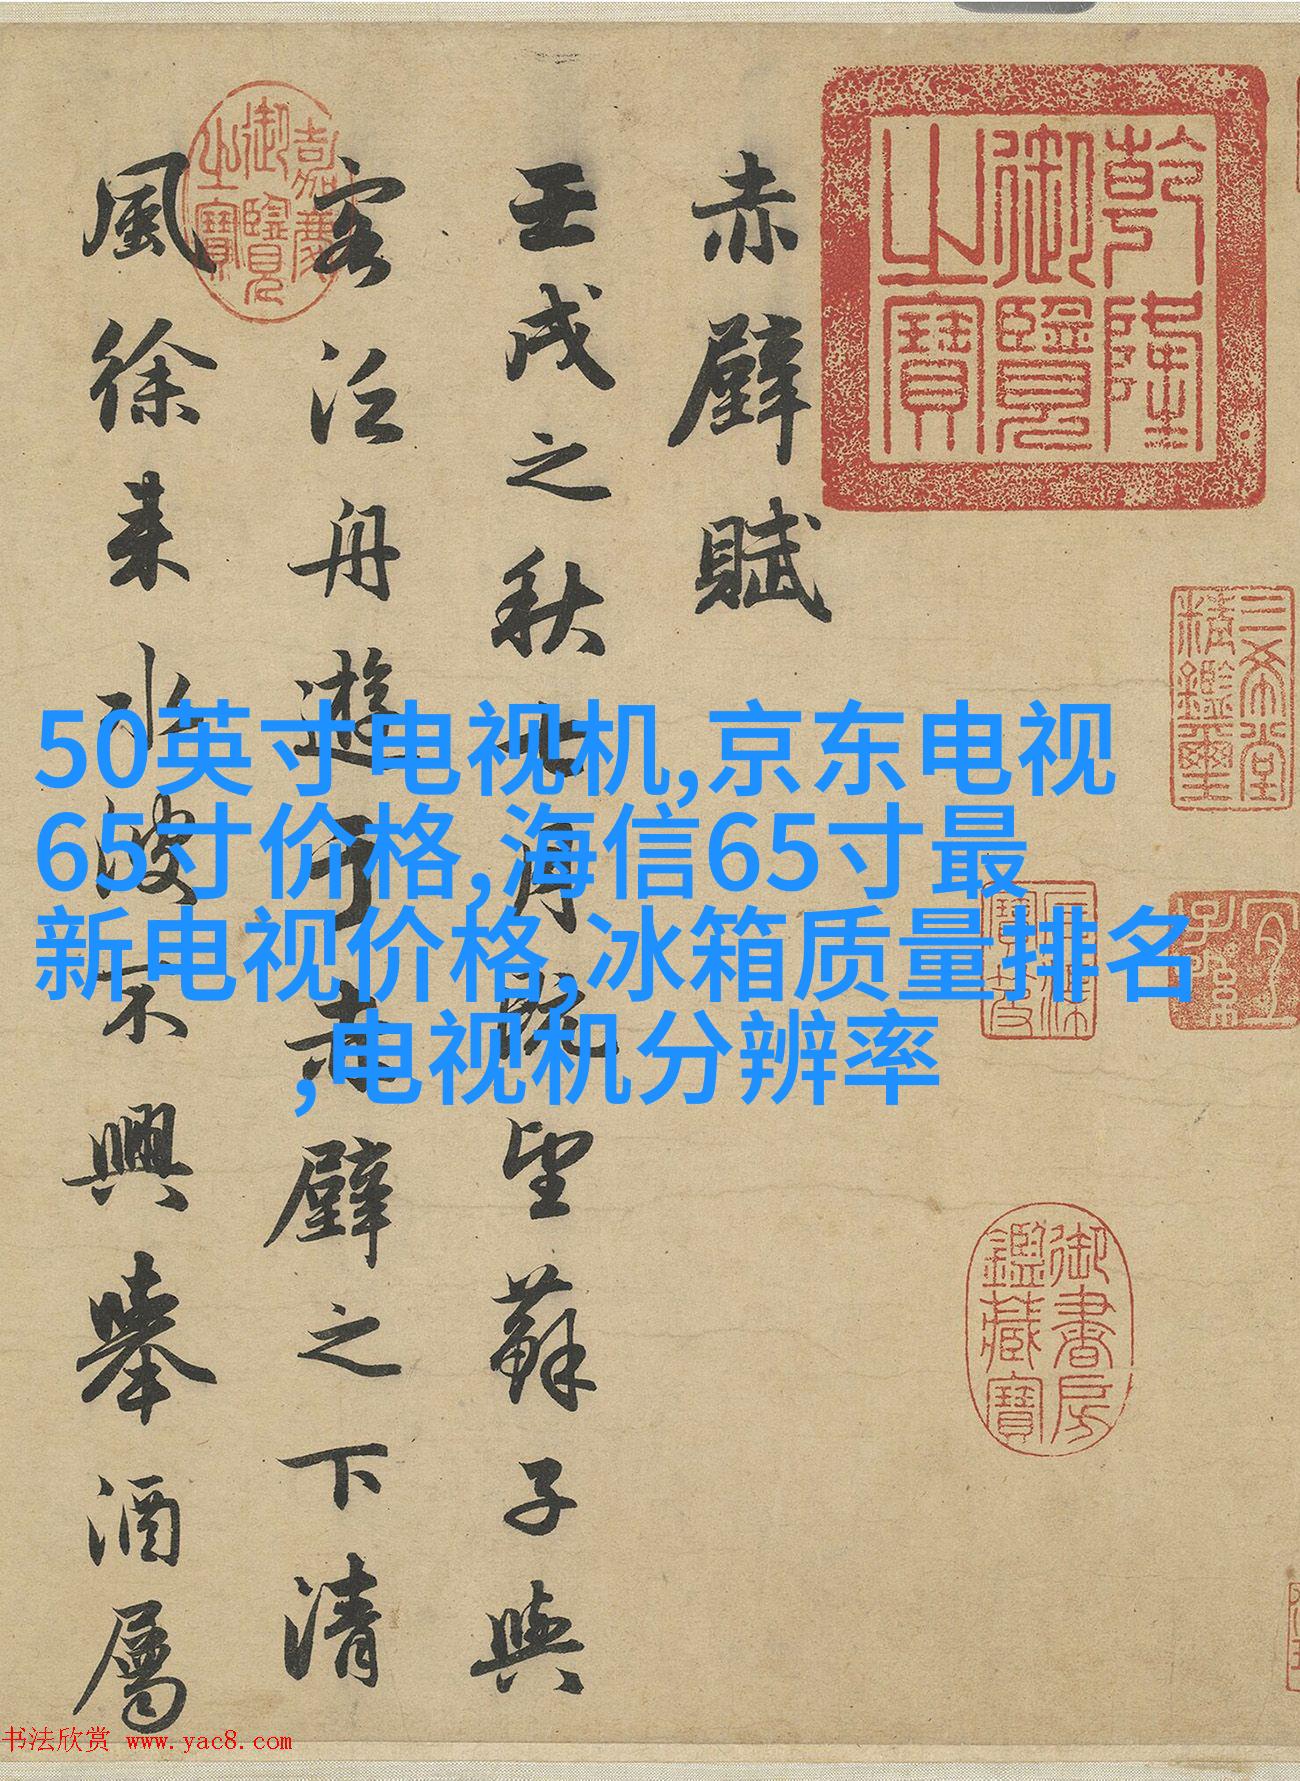 乾隆御覽之寶
三希堂精鑑璽
宜子孫
石渠寶笈
御書房鑑藏寶
赤壁賦
壬戌之秋七月既望蘇子與
客泛舟遊于赤壁之下清
風徐来水波不興舉酒屬
嘉慶御覽之寶
50英寸电视机,京东电视
65寸价格,海信65寸最
新电视价格,冰箱质量排名
,电视机分辨率
书法欣赏 www.yac8.com